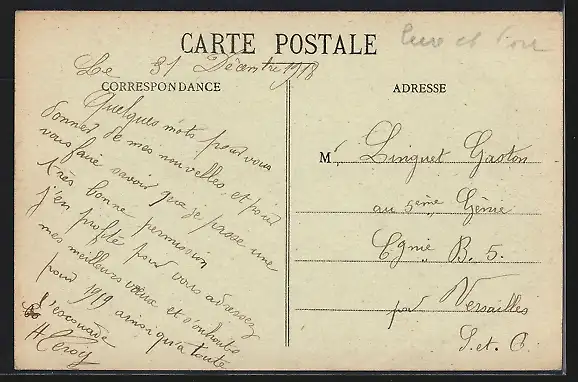 CARTE POSTALE
Eure et
Le 31 Décembre 1918
CORRESPONDANCE
Quelques mots pour vous
donner de mes nouvelles, et pour
vous faire savoir que je passe une
très bonne permission
j'en profite pour vous adresser
mes meilleurs vœux et
pour 1919 ainsi qu'à toute
l'escouade
H Leroy
ADRESSE
Mr, Linguet Gaston
au 5ème Génie
Cgnie B. 5.
par Versailles
S. et. O.